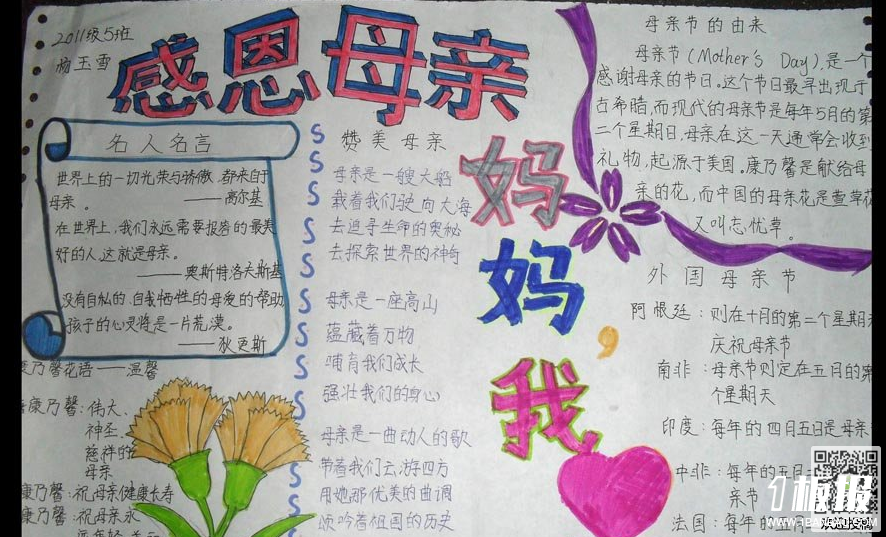 2011级5班
杨玉雪
感恩母亲
名人名言
世界上的一切光荣与骄傲,都来自
母亲。
——高尔基
在世界上,我们永远需要报答的最美
好的人,这就是母亲。
——奥斯特洛夫斯基
没有自私的,自我牺牲的母爱的帮助,
孩子的心灵将是一片荒漠。
——狄更斯
乃馨花语——温馨
康乃馨:伟大、
神圣、
慈祥的
母亲
康乃馨:祝母亲健康长寿
康乃馨:祝母亲永
赞美母亲
母亲是一艘大船
载着我们驶向大海
去追寻生命的奥秘
去探索世界的神奇
母亲是一座高山
蕴藏着万物
哺育我们成长
强壮我们的身心
母亲是一曲动人的歌
带着我们云游四方
用她那优美的曲调
颂吟着祖国的历史
妈妈,我
母亲节的由来
母亲节(Mother's Day),是一个
感谢母亲的节日。这个节日最早出现于
古希腊,而现代的母亲节是每年5月的第
二个星期日,母亲在这一天通常会收到
礼物,起源于美国。康乃馨是献给母
亲的花,而中国的母亲花是萱草花
又叫忘忧草。
外国母亲节
阿根廷:则在十月的第二个星期天
庆祝母亲节
南非:母亲节则定在五月的第
个星期天
印度:每年的四月五日是母亲
中非:每年的五月
亲节
法国:每年的五月
1板报
WWW.1BANBAO.COM